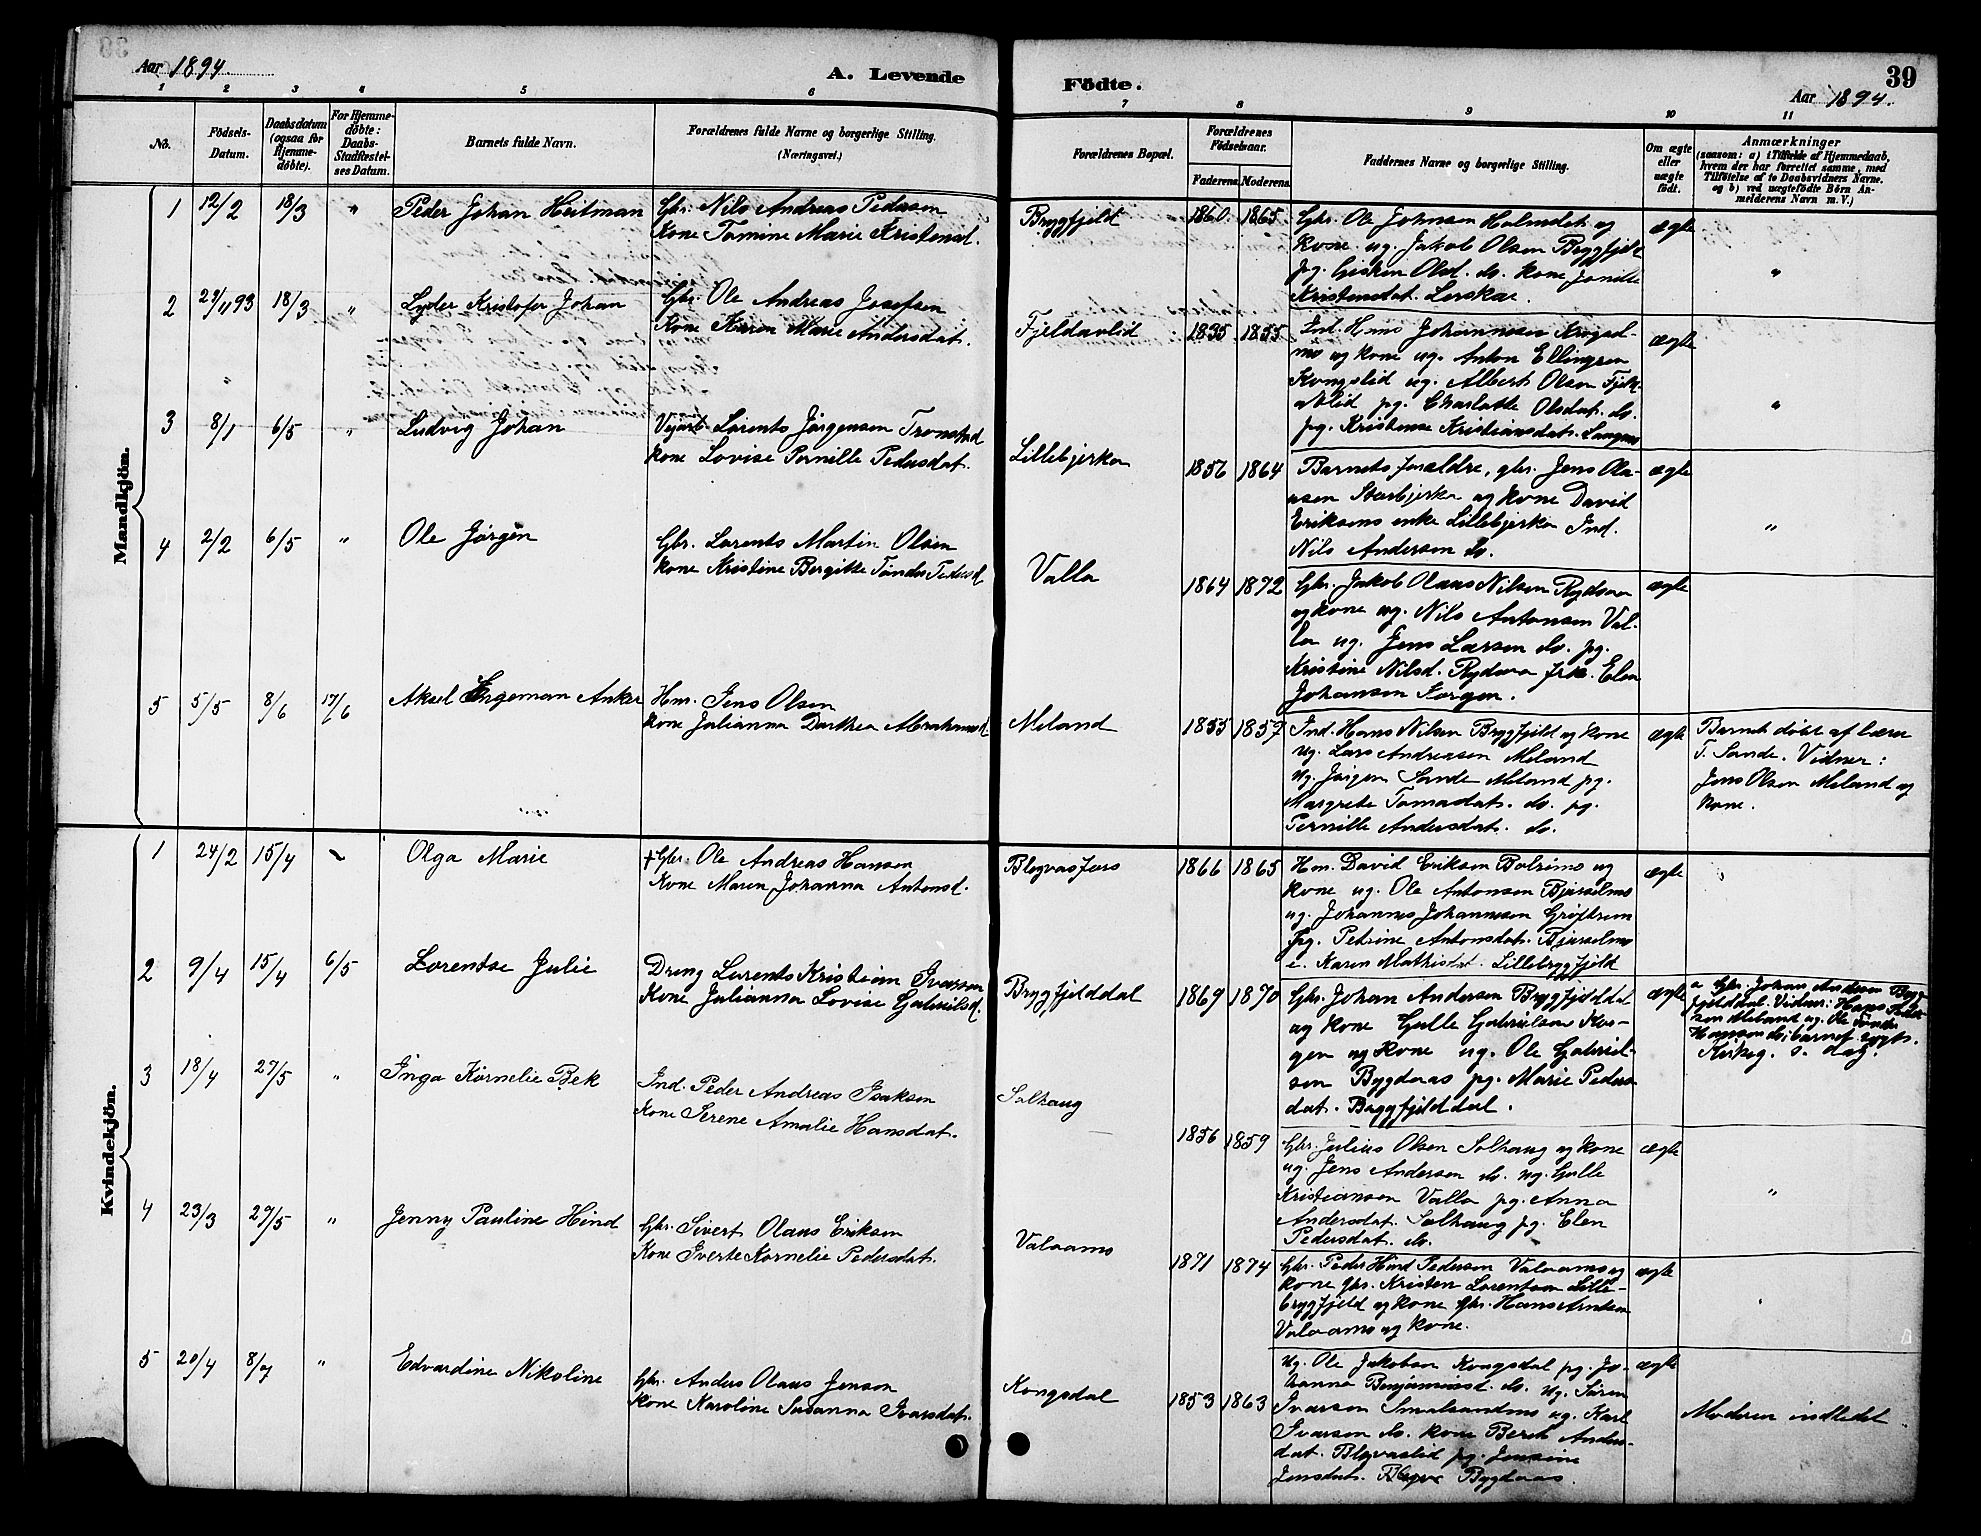 Aar 1894.
A. Levende
Födte.
39
Aar 1894.
1 2 3 4 5 6 7 8 9 10 11
No.
Födsels-
Datum.
Daabsdatum
(ogsaa for
Hjemme-
döbte).
For Hjemme-
döbte:
Daabs-
Stadfæstel-
ses Datum.
Barnets fulde Navn.
Forældrenes fulde Navne og borgerlige Stilling.
(Næringsvei.)
Forældrenes Bopæl.
Forældrenes
Födselsaar.
Faderens. Moderens.
Faddernes Navne og borgerlige Stilling.
Om ægte
eller
uægte
födt.
Anmærkninger
(saasom: a) i Tilfælde af Hjemmedaab,
hvem der har forrettet samme, med
Tilföielse af to Daabsvidners Navne.
og b) ved uægtefödte Börn An-
melderens Navn m. V.)
Mandkjön.
1 12/2 18/3 " Peder Johan Heitman
Gbr. Nils Andreas Pedersen
Kone Tomine Marie Kristensd.
Bryggfjeld 1860. 1865
Gbr. Ole Johnsen Holmslet og
Kone ug. Jakob Olsen Bryggfjeld
pg. Gisken Olsd. do. kone
Kristensdat. Lerskar.
ægte "
2 29/11 93 18/3 " Lyder Kristofer Johan
Gbr. Ole Andreas Josefsen
Kone Karen Marie Andersdat.
Fjeldavlid 1835 1855
Ind. Hans Johannesen
og kone ug. Anton Ellingsen
Kongslid ug. Albert Olsen Fjeld-
avlid pg. Charlotte Olsdat. do.
pg. Kristense Kristiansdat.
ægte "
3 8/1 6/5 " Ludvig Johan
Lorents Jørgensen
Kone Lovise Pernille Pedersdat.
Lillebjerka 1856 1864
Barnets forældre, gbr. Jens Ola-
usen Storbjerka og kone David
Eriksens enke Lillebjerka Ind.
Nils Andersen do.
ægte "
4 2/2 6/5 " Ole Jørgen
Gbr. Lorents Martin Olsen
Kone Kristine Bergitte Tønder Pedersd
Valla 1864 1872
Gbr. Jakob Olaus Nilsen Rydsaa
og kone ug. Nils Antonsen Val-
la ug. Jens Larsen do. pg.
Kristine Nilsd. frk. Elen
Johansen
ægte
5 5/5 8/6 17/6 Aksel Engeman Anker
Hm. Jens Olsen
Kone Julianna Dorthea Abrahamsd
Meland 1855 1857
Ind. Hans Nilsen Bryggfjeld og kone
ug. Lars Andreasen Meland
ug. Jørgen Sande Meland pg.
Margrete Tomasdat. do. pg.
Pernille Andersdat. do.
ægte
Barnet døbt af lærer
T. Sande. Vidner:
Jens Olsen Meland og
kone.
Kvindekjön.
1 24/2 15/4 Olga Marie
+ Gbr. Ole Andreas Hansen
Kone Maren Johanna Antonsd.
Blegvasfors 1866 1865
Hm. David Eriksen og
Kone ug. Ole Antonsen
ug. Johannes Johannesen
Pg. Petrine Antonsdat.
Karen Lillebryggfjeld
ægte
2 9/4 15/4 6/5 Lorentse Julie
Dreng Lorents Kristian Ivarsen
Kone Julianna Lovise Gabrielsd.
Bryggfjelddal 1869 1870
Gbr. Johan Andersen Bryggfjelddal
og kone Gulle Gabrielsen
og kone ug. Ole Gabriel-
sen Bygdaas pg. Marie Peders-
dat. Bryggfjelddal.
ægte
a Gbr. Johan Andersen Brygg-
fjelddal. Vidner: Hans
Meland ug. Ole Tønder
Hansen do; barnet
s. dag.
3 18/4 27/5 " Inga Kornelie Bek
Ind. Peder Andreas Isaksen
Kone Serene Amalie Hansdat.
Solhaug 1856 1859
Gbr. Julius Olsen Solhaug og kone
ug. Jens Andersen do. ug. Gulle
Kristiansen Valla pg. Anna
Andersdat. Solhaug pg. Elen
Pedersdat. do.
ægte "
4 23/3 27/5 " Jenny Pauline Hind
Gbr. Sivert Olaus Eriksen
Kone Sverte Kornelie Pedersdat.
Valaams 1871 1874
Gbr. Peder Hind Pedersen Valaams og
Kone gbr. Kristen Lorentsen Lille-
bryggfjeld og kone gbr. Hans Arntsen
Valaams og kone.
ægte
5 20/4 8/7 " Edvardine Nikoline
Gbr. Anders Olaus Jensen
Kone Karoline Susanna Ivarsdat.
Kongsdal 1853 1863
ug. Ole Jakobsen Kongsdal pg. Jo-
hanna Benjaminsd. do. ug. Søren
Ivarsen ug. Karl
Ivarsen do. kone Beret Anders-
dat. Blegvaslid pg. Jensine
Jensdat. Bygdaas.
ægte
Moderen indledet